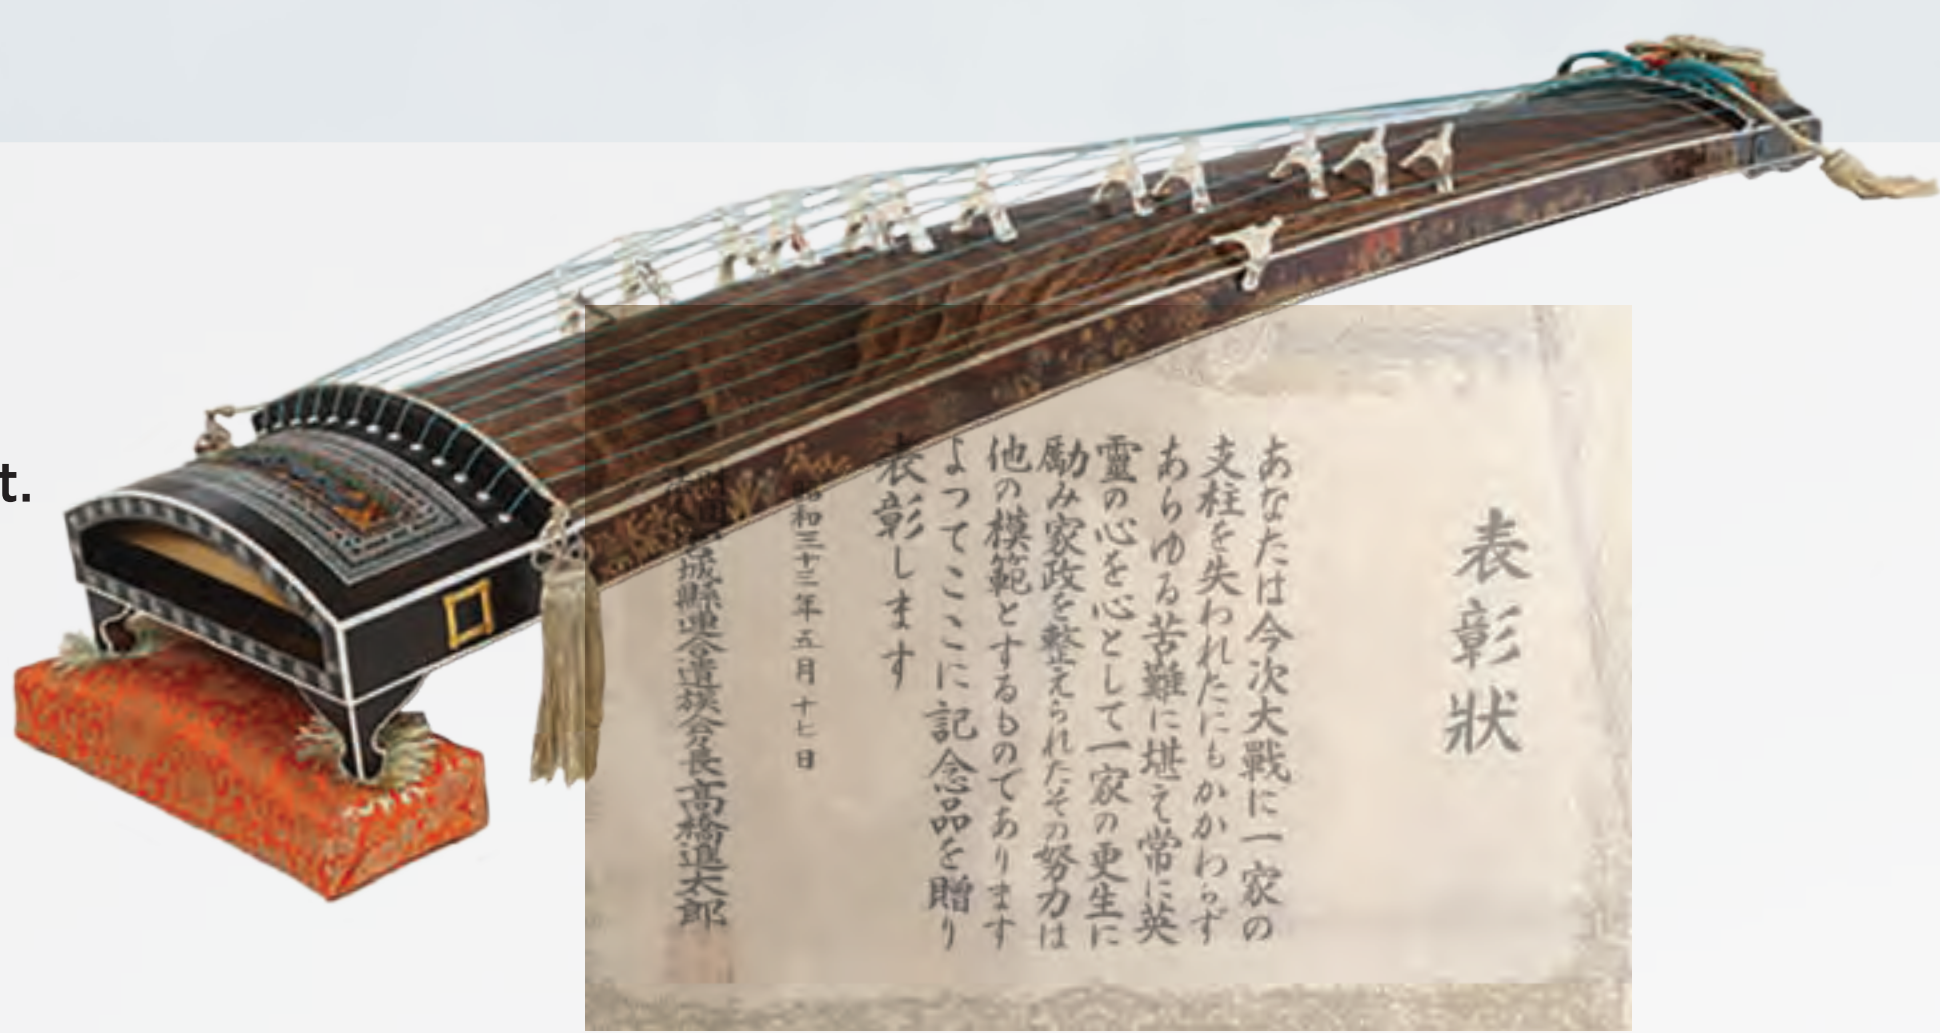 t.
表彰狀
あなたは今次大戰に一家の
支柱を失われたにもかかわらず
あらゆる苦難に堪え常に英
靈の心を心として一家の更生に
励み家政を整えられたその努力は
他の模範とするものであります
よってここに記念品を贈り
表彰します
和三十三年五月十七日
城縣連合遺族会会長高橋進太郎